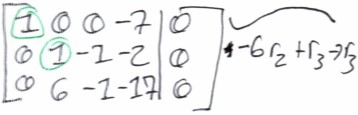 1 0 0 -7 | 0
0 1 -1 -2 | 0
0 6 -1 -17 | 0
-6r₂+r₃→r₃